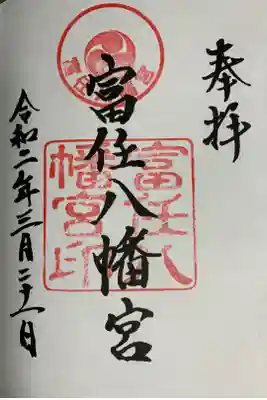 奉拝
富任八幡宮
富任八
幡宮印
令和二年三月二十一日